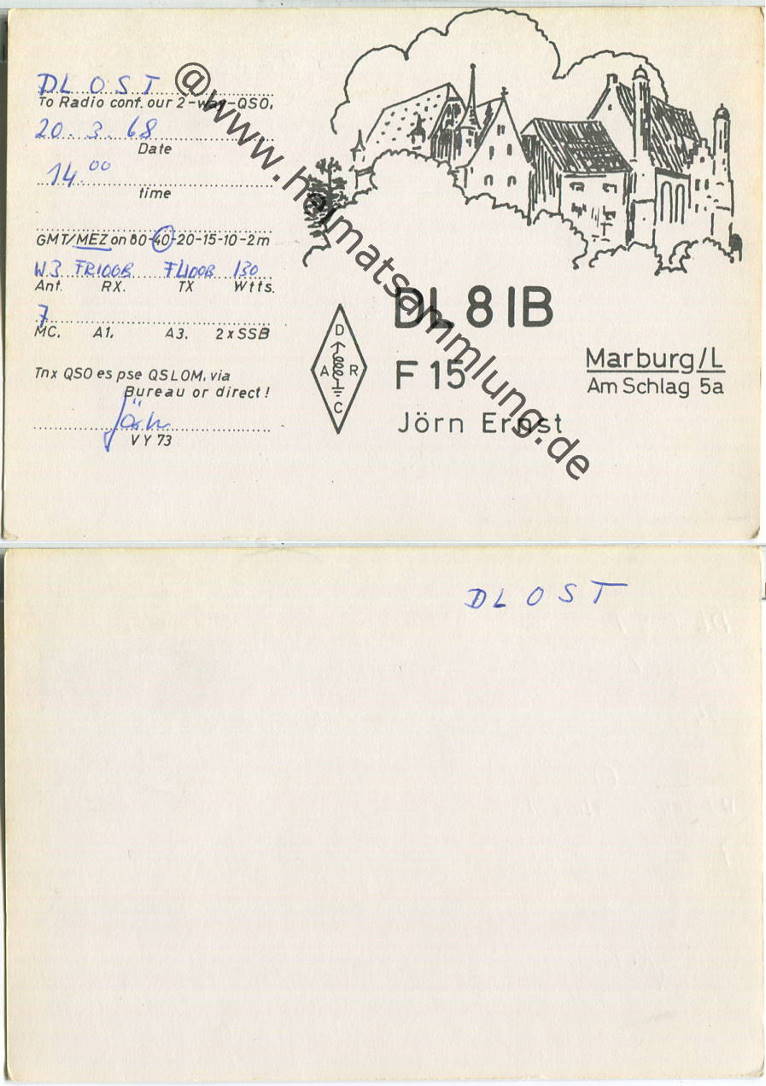 DL 0 S T
To Radio conf. our 2-way-QSO,
20. 3. 68
Date
14 00
time
GMT/MEZ on 80-40-20-15-10-2m
W3 FR100B FL100B 130
Ant. RX. TX Wtts.
7
MC. A1. A3. 2xSSB
Tnx QSO es pse QSLOM. via
Bureau or direct!
Jörn
VY 73
D
A R
C
DL 8 IB
F 15
Jörn Ernst
Marburg/L
Am Schlag 5a
@www.heimatsammlung.de
DL 0 S T